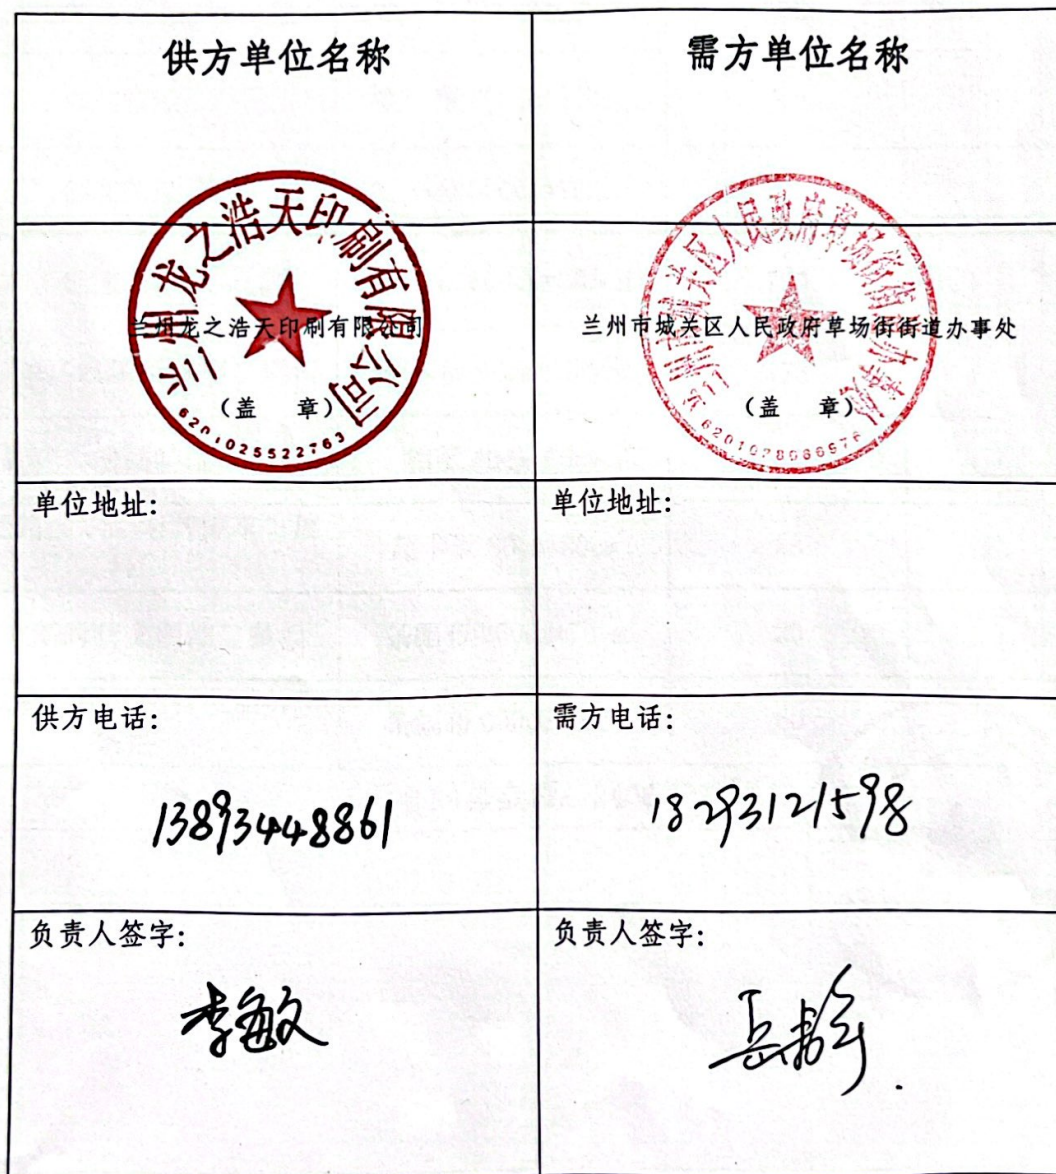 供方单位名称
需方单位名称
兰州龙之浩天印刷有限公司
兰州龙之浩天印刷有限公司
（盖 章）
6201025522763
兰州市城关区人民政府草场街街道办事处
兰州市城关区人民政府草场街街道办事处
（盖 章）
单位地址:
单位地址:
供方电话:
13893448861
需方电话:
18293121598
负责人签字:
李敏
负责人签字: